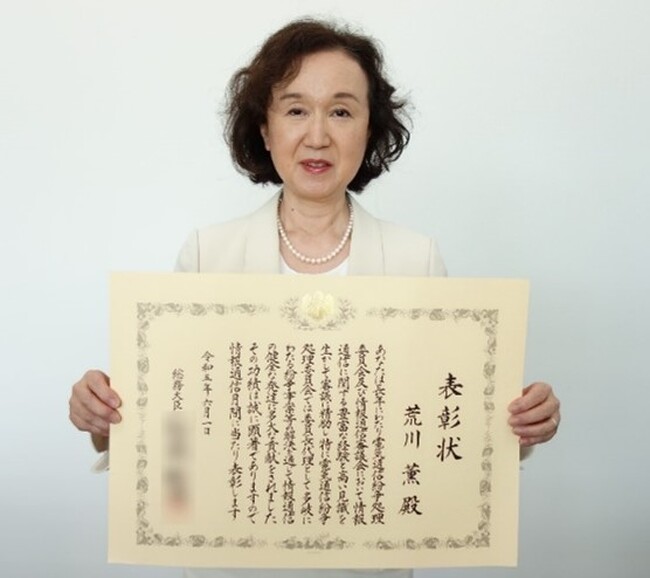 表彰状
荒川 薫 殿
あなたは長年にわたり電気通信紛争処理
委員会及び情報通信審議会において情報
通信に関する豊富な経験と高い見識を
生かして審議に精励し特に電気通信紛争
処理委員会では委員長代理として多岐に
わたる紛争事案等の解決を通じて情報通信
の健全な発達に多大な貢献をされました
その功績は誠に顕著でありますので
情報通信月間に当たり表彰します
令和五年六月一日
総務大臣